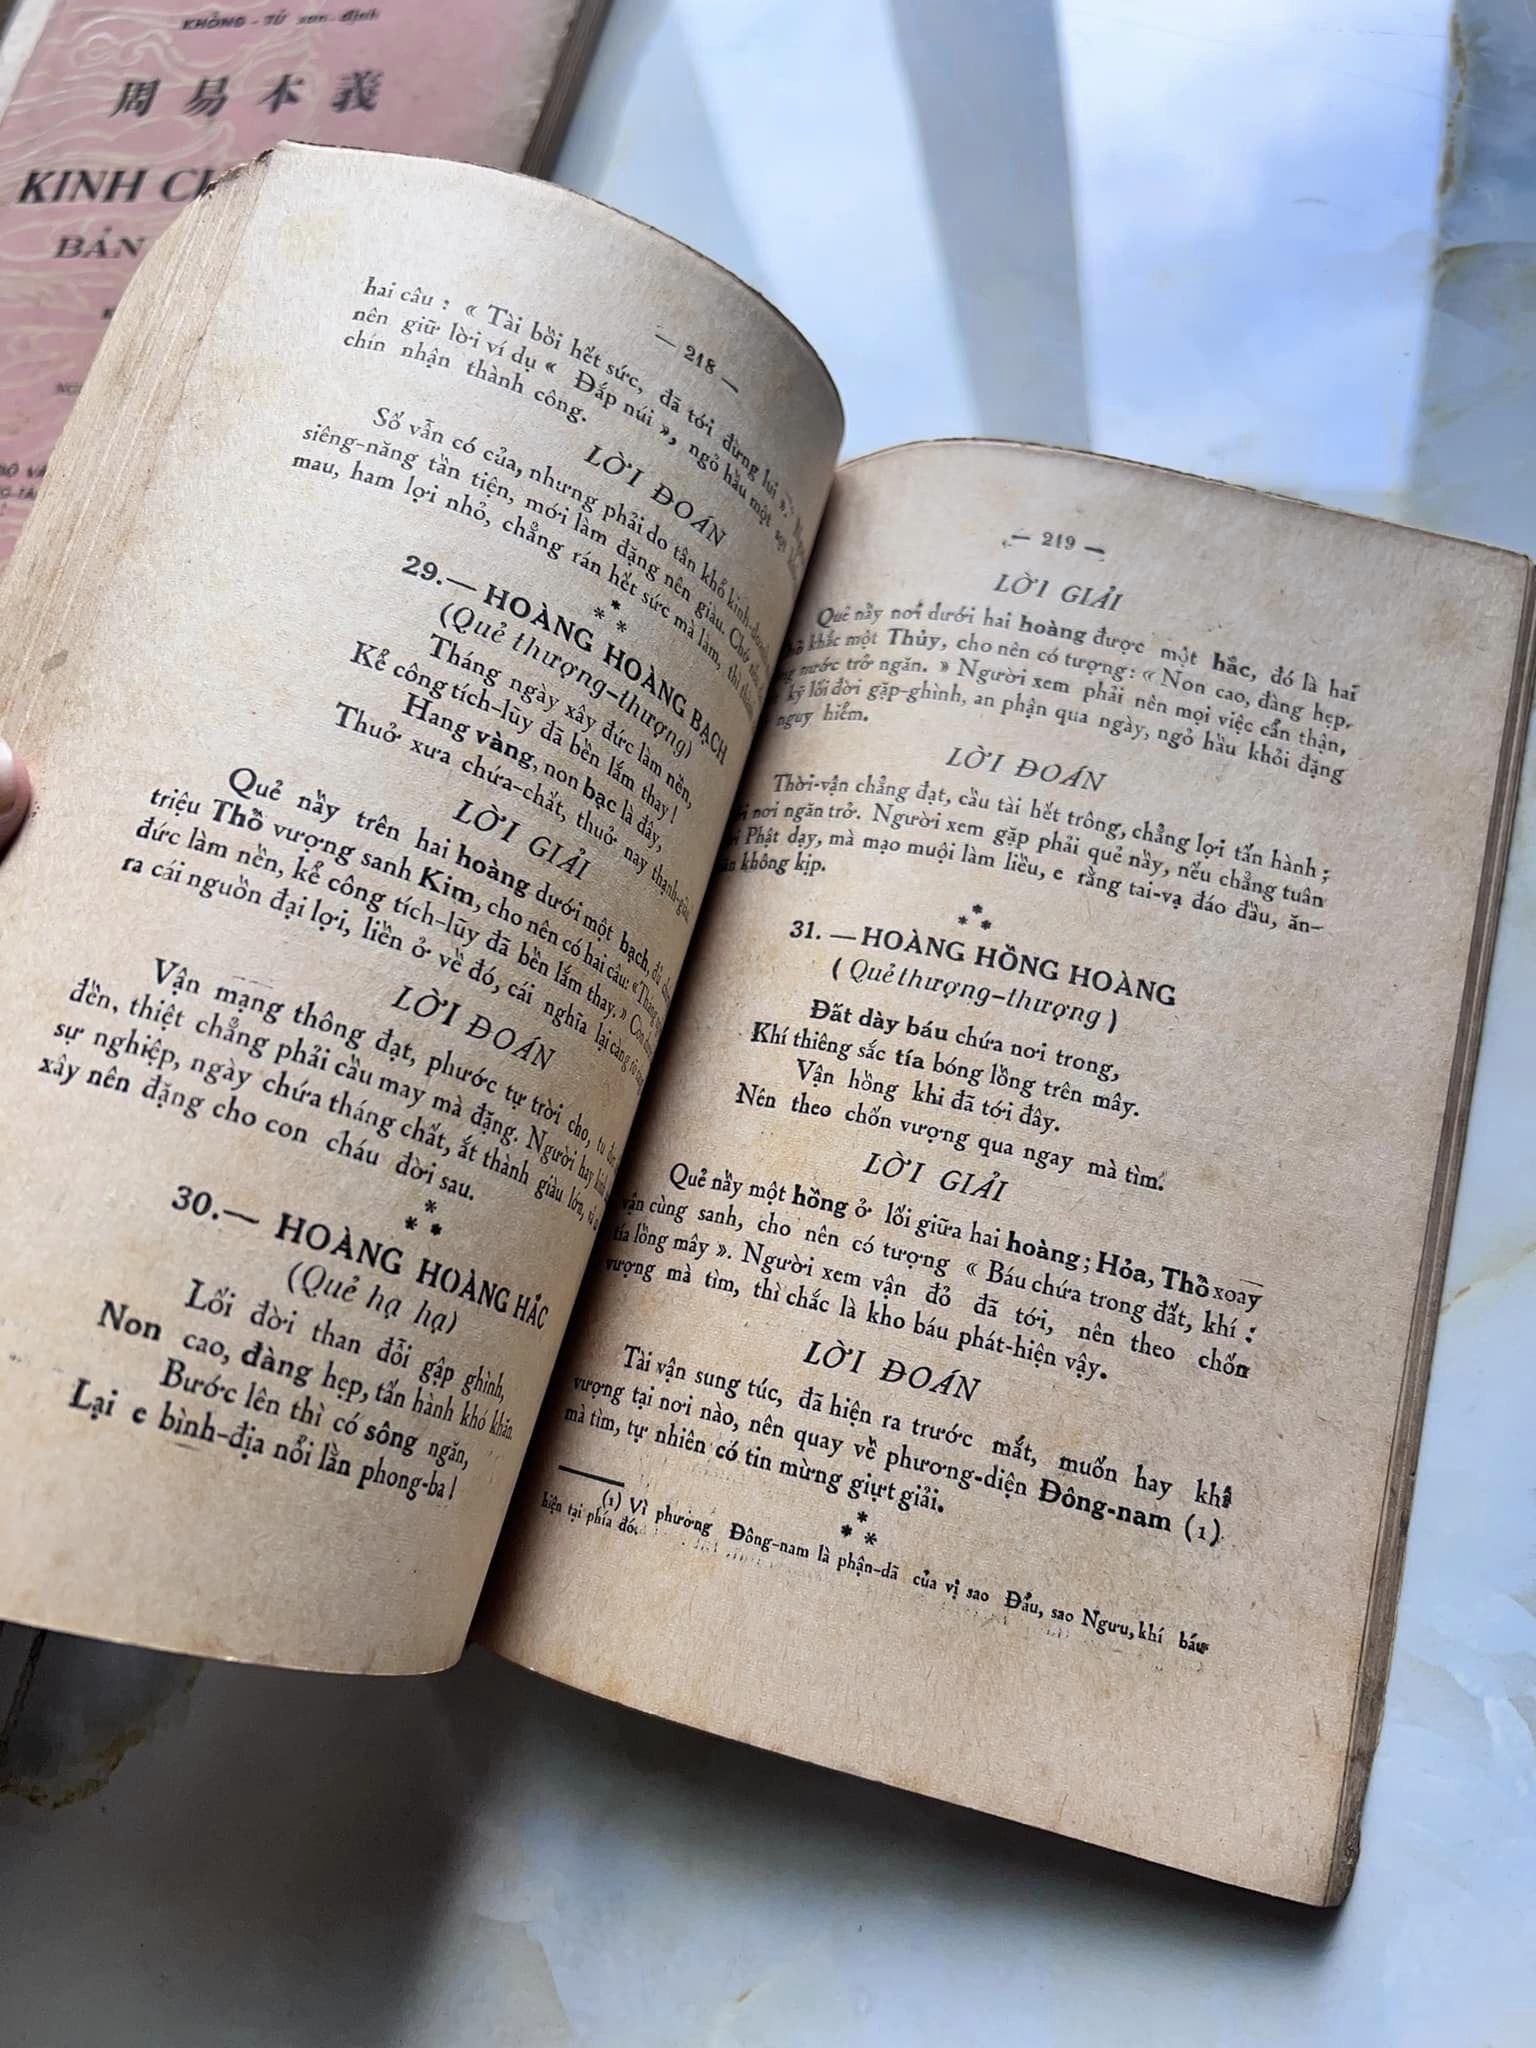 KHỔNG - TỬ san - định
周易本義
KINH
BẢN
— 218 —
hai câu : « Tài bồi hết sức, đã tới đừng lui ».
nên giữ lời ví dụ « Đắp núi », ngỏ hầu một sọt
chín nhận thành công.
LỜI ĐOÁN
Số vẫn có của, nhưng phải do tân khổ
siêng-năng tần tiện, mới làm đặng nên giàu. Chớ
mau, ham lợi nhỏ, chẳng rán hết sức mà làm, thì
* * *
29.— HOÀNG HOÀNG BẠCH
(Quẻ thượng-thượng)
Tháng ngày xây đức làm nền,
Kể công tích-lũy đã bền lắm thay !
Hang vàng, non bạc là đây,
Thuở xưa chứa-chất, thuở nay thạnh-giàu.
LỜI GIẢI
Quẻ nầy trên hai hoàng dưới một bạch,
triệu Thổ vượng sanh Kim, cho nên có hai câu: «Tháng
đức làm nền, kể công tích-lũy đã bền lắm thay. »
ra cái nguồn đại lợi, liền ở về đó, cái nghĩa lại càng rõ
LỜI ĐOÁN
Vận mạng thông đạt, phước tự trời cho,
đền, thiệt chẳng phải cầu may mà đặng. Người hay
sự nghiệp, ngày chứa tháng chất, ắt thành giàu lớn,
xây nên đặng cho con cháu đời sau.
* * *
30.— HOÀNG HOÀNG HẮC
(Quẻ hạ hạ)
Lối đời than đỗi gập ghình,
Non cao, đàng hẹp, tấn hành khó khăn.
Bước lên thì có sông ngăn,
Lại e bình-địa nổi lằn phong-ba !
— 219 —
LỜI GIẢI
Quẻ nầy nơi dưới hai hoàng được một hắc, đó là hai
khắc một Thủy, cho nên có tượng: « Non cao, đàng hẹp,
nước trở ngăn. » Người xem phải nên mọi việc cẩn thận,
kỹ lối đời gặp-ghình, an phận qua ngày, ngỏ hầu khỏi đặng
nguy hiểm.
LỜI ĐOÁN
Thời-vận chẳng đạt, cầu tài hết trông, chẳng lợi tấn hành ;
nơi ngăn trở. Người xem gặp phải quẻ nầy, nếu chẳng tuân
Phật dạy, mà mạo muội làm liều, e rằng tai-vạ đáo đầu, ăn-
không kịp.
* * *
31. — HOÀNG HỒNG HOÀNG
( Quẻ thượng-thượng )
Đất dày báu chứa nơi trong,
Khí thiêng sắc tía bóng lồng trên mây.
Vận hồng khi đã tới đây.
Nên theo chốn vượng qua ngay mà tìm.
LỜI GIẢI
Quẻ nầy một hồng ở lối giữa hai hoàng ; Hỏa, Thổ xoay
vận cùng sanh, cho nên có tượng « Báu chứa trong đất, khí :
tía lồng mây ». Người xem vận đỏ đã tới, nên theo chốn
vượng mà tìm, thì chắc là kho báu phát-hiện vậy.
LỜI ĐOÁN
Tài vận sung túc, đã hiện ra trước mắt, muốn hay khí
vượng tại nơi nào, nên quay về phương-diện Đông-nam (1)
mà tìm, tự nhiên có tin mừng giựt giải.
* * *
(1) Vì phương Đông-nam là phận-dã của vị sao Đẩu, sao Ngưu, khí báu
hiện tại phía đó.